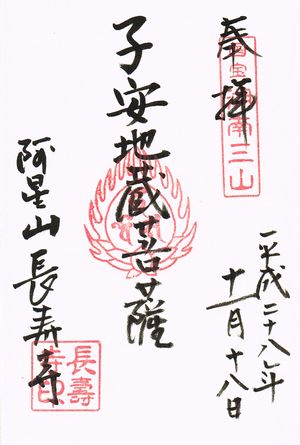 奉拝
国宝湖南三山
平成二十八年
十一月十八日
子安地蔵菩薩
阿星山長寿寺
長壽寺印